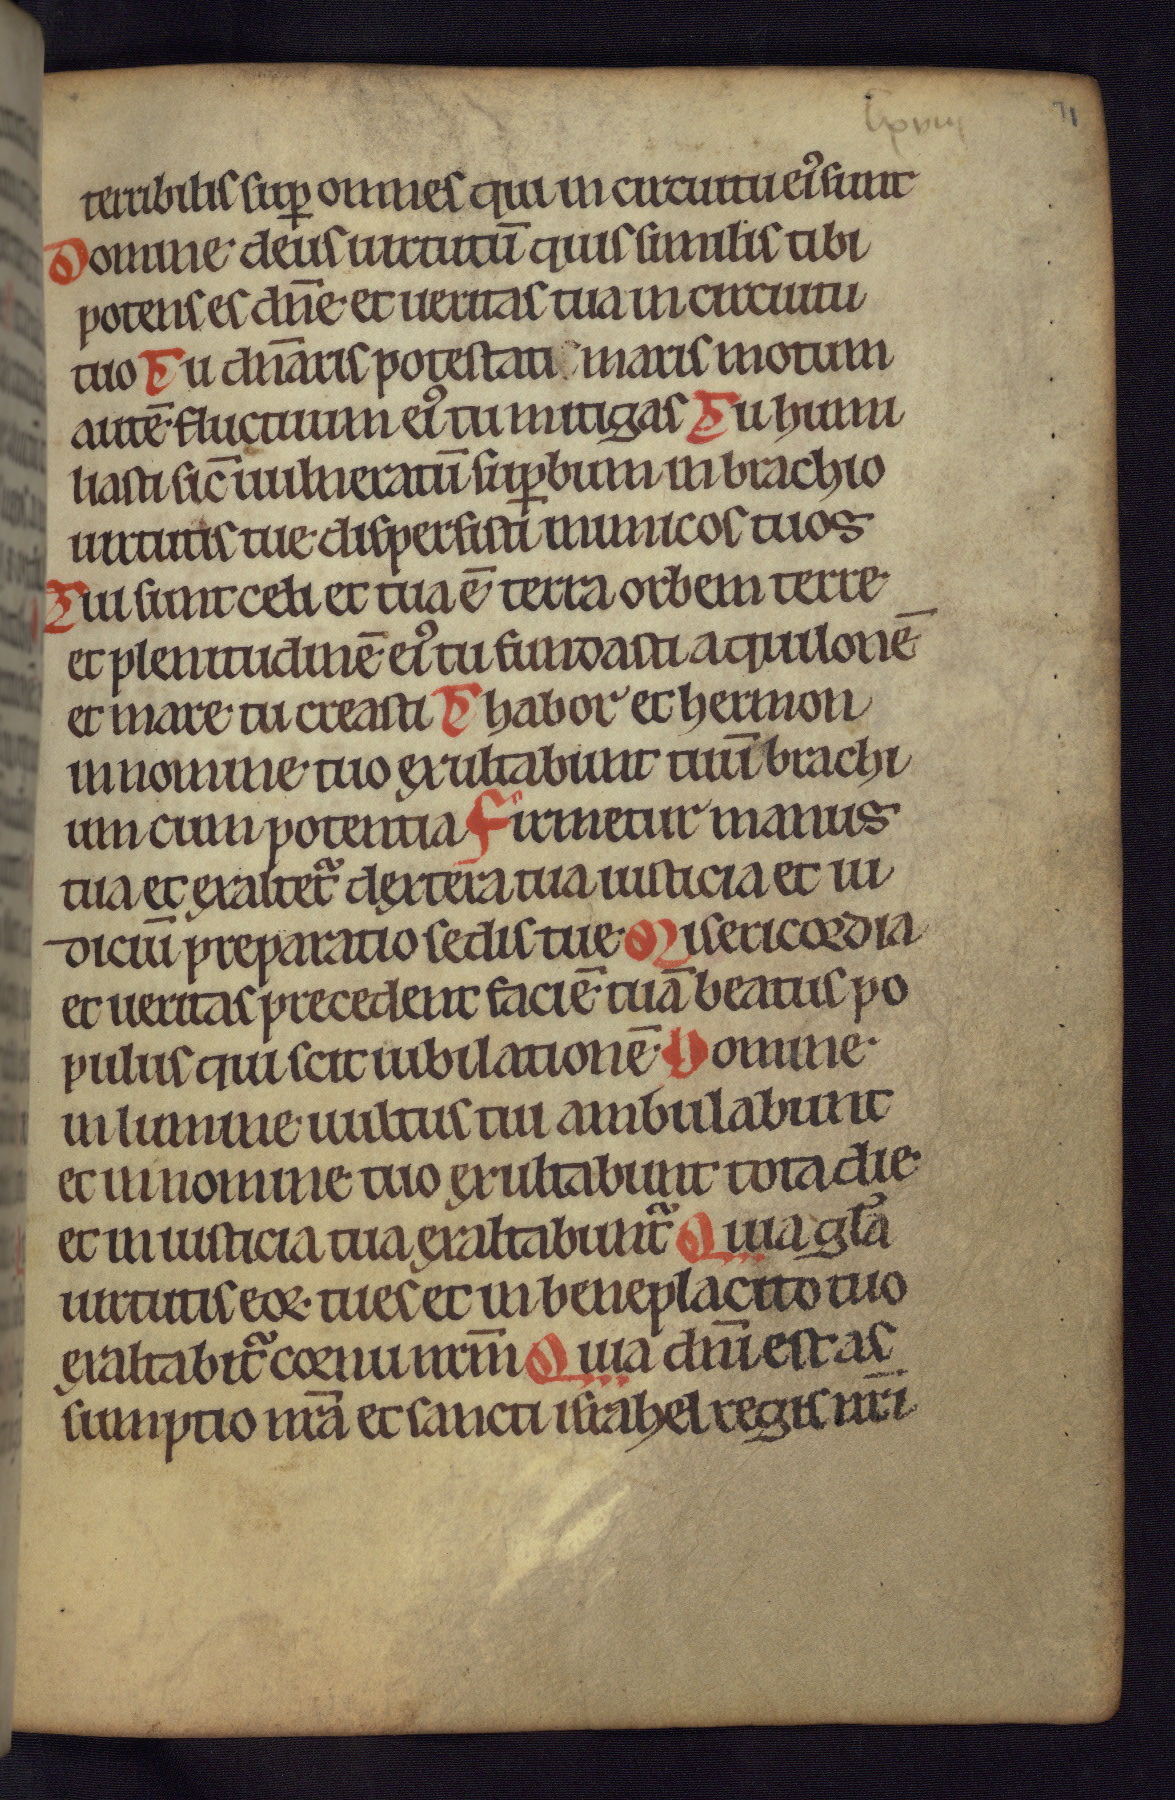 lxviij 71
terribilis sup̱ omnes qui in circuitu eiꝰ sunt
Domine deus uirtutū quis similis tibi
potens es dn̄e et ueritas tua in circuitu
tuo Tu dn̄aris potestati maris motum
autē fluctuum eiꝰ tu mitigas Tu humi
liasti sic̄ uulneratū sup̱bum in brachio
uirtutis tue dispersisti inimicos tuos
Tui sunt celi et tua ē terra orbem terre
et plenitudinē eiꝰ tu fundasti aquilonē
et mare tu creasti Thabor et hermon
in nomine tuo exultabunt tuū brachi
um cum potentia Firmetur manus
tua et exaltet᷑ dextera tua iusticia et iu
diciū preparatio sedis tue Misericordia
et ueritas precedent faciē tuā beatus po
pulus qui scit iubilationē Domine
in lumine uultus tui ambulabunt
et in nomine tuo exultabunt tota die
et in iusticia tua exaltabunt᷑ Quia gl̄a
uirtutis eoꝝ tu es et in beneplacito tuo
exaltabit᷑ cornu nr̄m Quia dn̄i est as
sumptio nr̄a et sancti israhel regis nr̄i